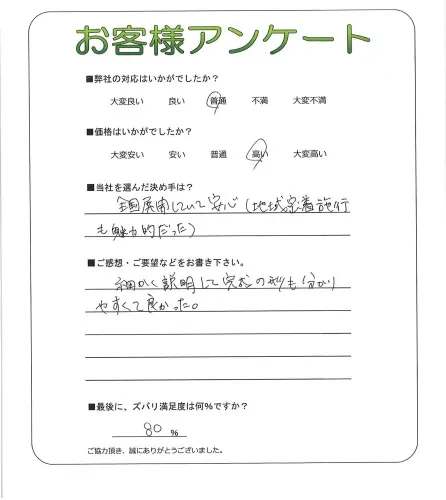 お客様アンケート
■弊社の対応はいかがでしたか?
大変良い 良い 普通 不満 大変不満
■価格はいかがでしたか?
大変安い 安い 普通 高い 大変高い
■当社を選んだ決め手は?
全国展開していて安心(地域密着施行
も魅力的だった)
■ご感想・ご要望などをお書き下さい。
細かく説明して完成の形も分かり
やすくて良かった。
■最後に、ズバリ満足度は何%ですか?
80 %
ご協力頂き、誠にありがとうございました。